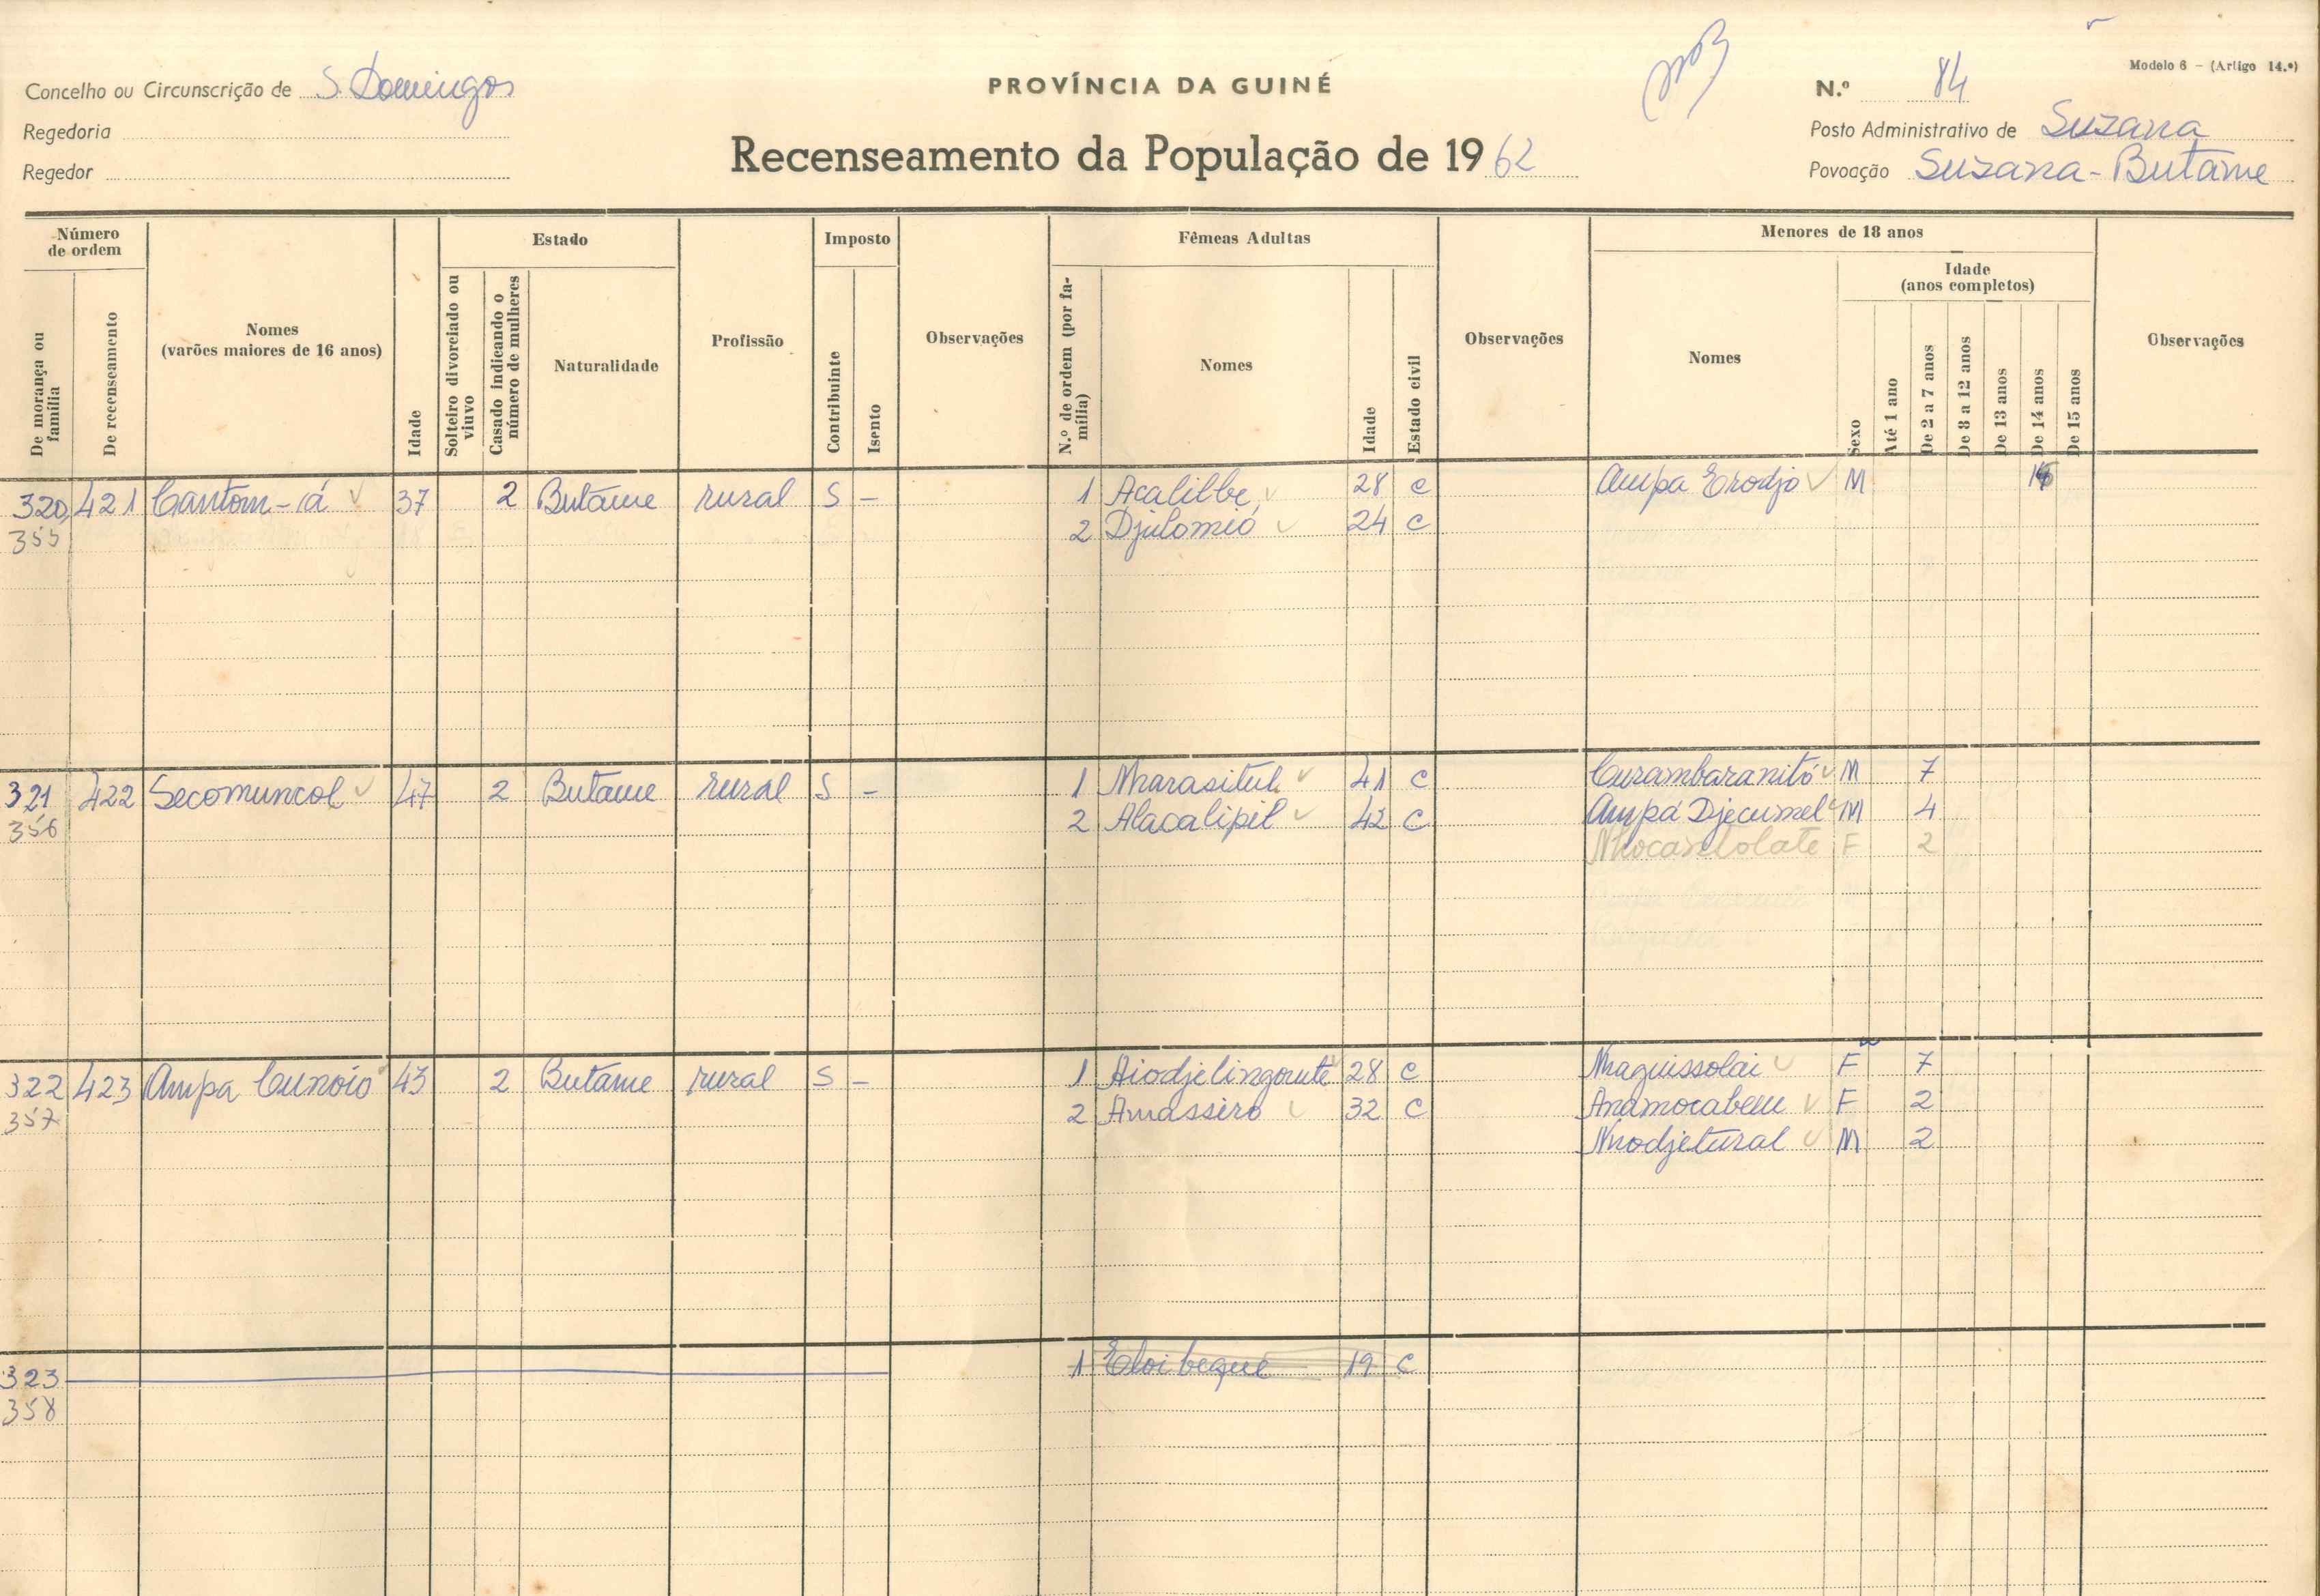 Modelo 6 – (Artigo 14.º)
Concelho ou Circunscrição de S. Domingos
PROVÍNCIA DA GUINÉ
N.º 84
Regedoria
Posto Administrativo de Suzana
Recenseamento da População de 1962
Regedor
Povoação Suzana-Butame
Número de ordem
De morança ou família
De recenseamento
Nomes
(varões maiores de 16 anos)
Idade
Estado
Solteiro divorciado ou viuvo
Casado indicando o número de mulheres
Naturalidade
Profissão
Imposto
Contribuinte
Isento
Observações
Fêmeas Adultas
N.º de ordem (por família)
Nomes
Idade
Estado civil
Observações
Menores de 18 anos
Nomes
Sexo
Idade
(anos completos)
Até 1 ano
De 2 a 7 anos
De 8 a 12 anos
De 13 anos
De 14 anos
De 15 anos
Observações
320 421 Cantom-iá 37 2 Butame rural S – 1 Acalibbe 28 c Ampa Erodjo M
355 2 Djulomió 24 c
321 422 Secomuncol 47 2 Butame rural S – 1 Nharasitul 41 c Curambaranitó M 7
356 2 Alacalipil 42 c Ampa Djecumel M 4
Nhocasilolate F 2
322 423 Ampa Cunoio 43 2 Butame rural S – 1 Aiodjelingouté 28 c Nhaguissolai F 7
357 2 Amassiro 32 c Anamocabem F 2
Nhodjetural M 2
323 1 Eloibeque 19 c
358